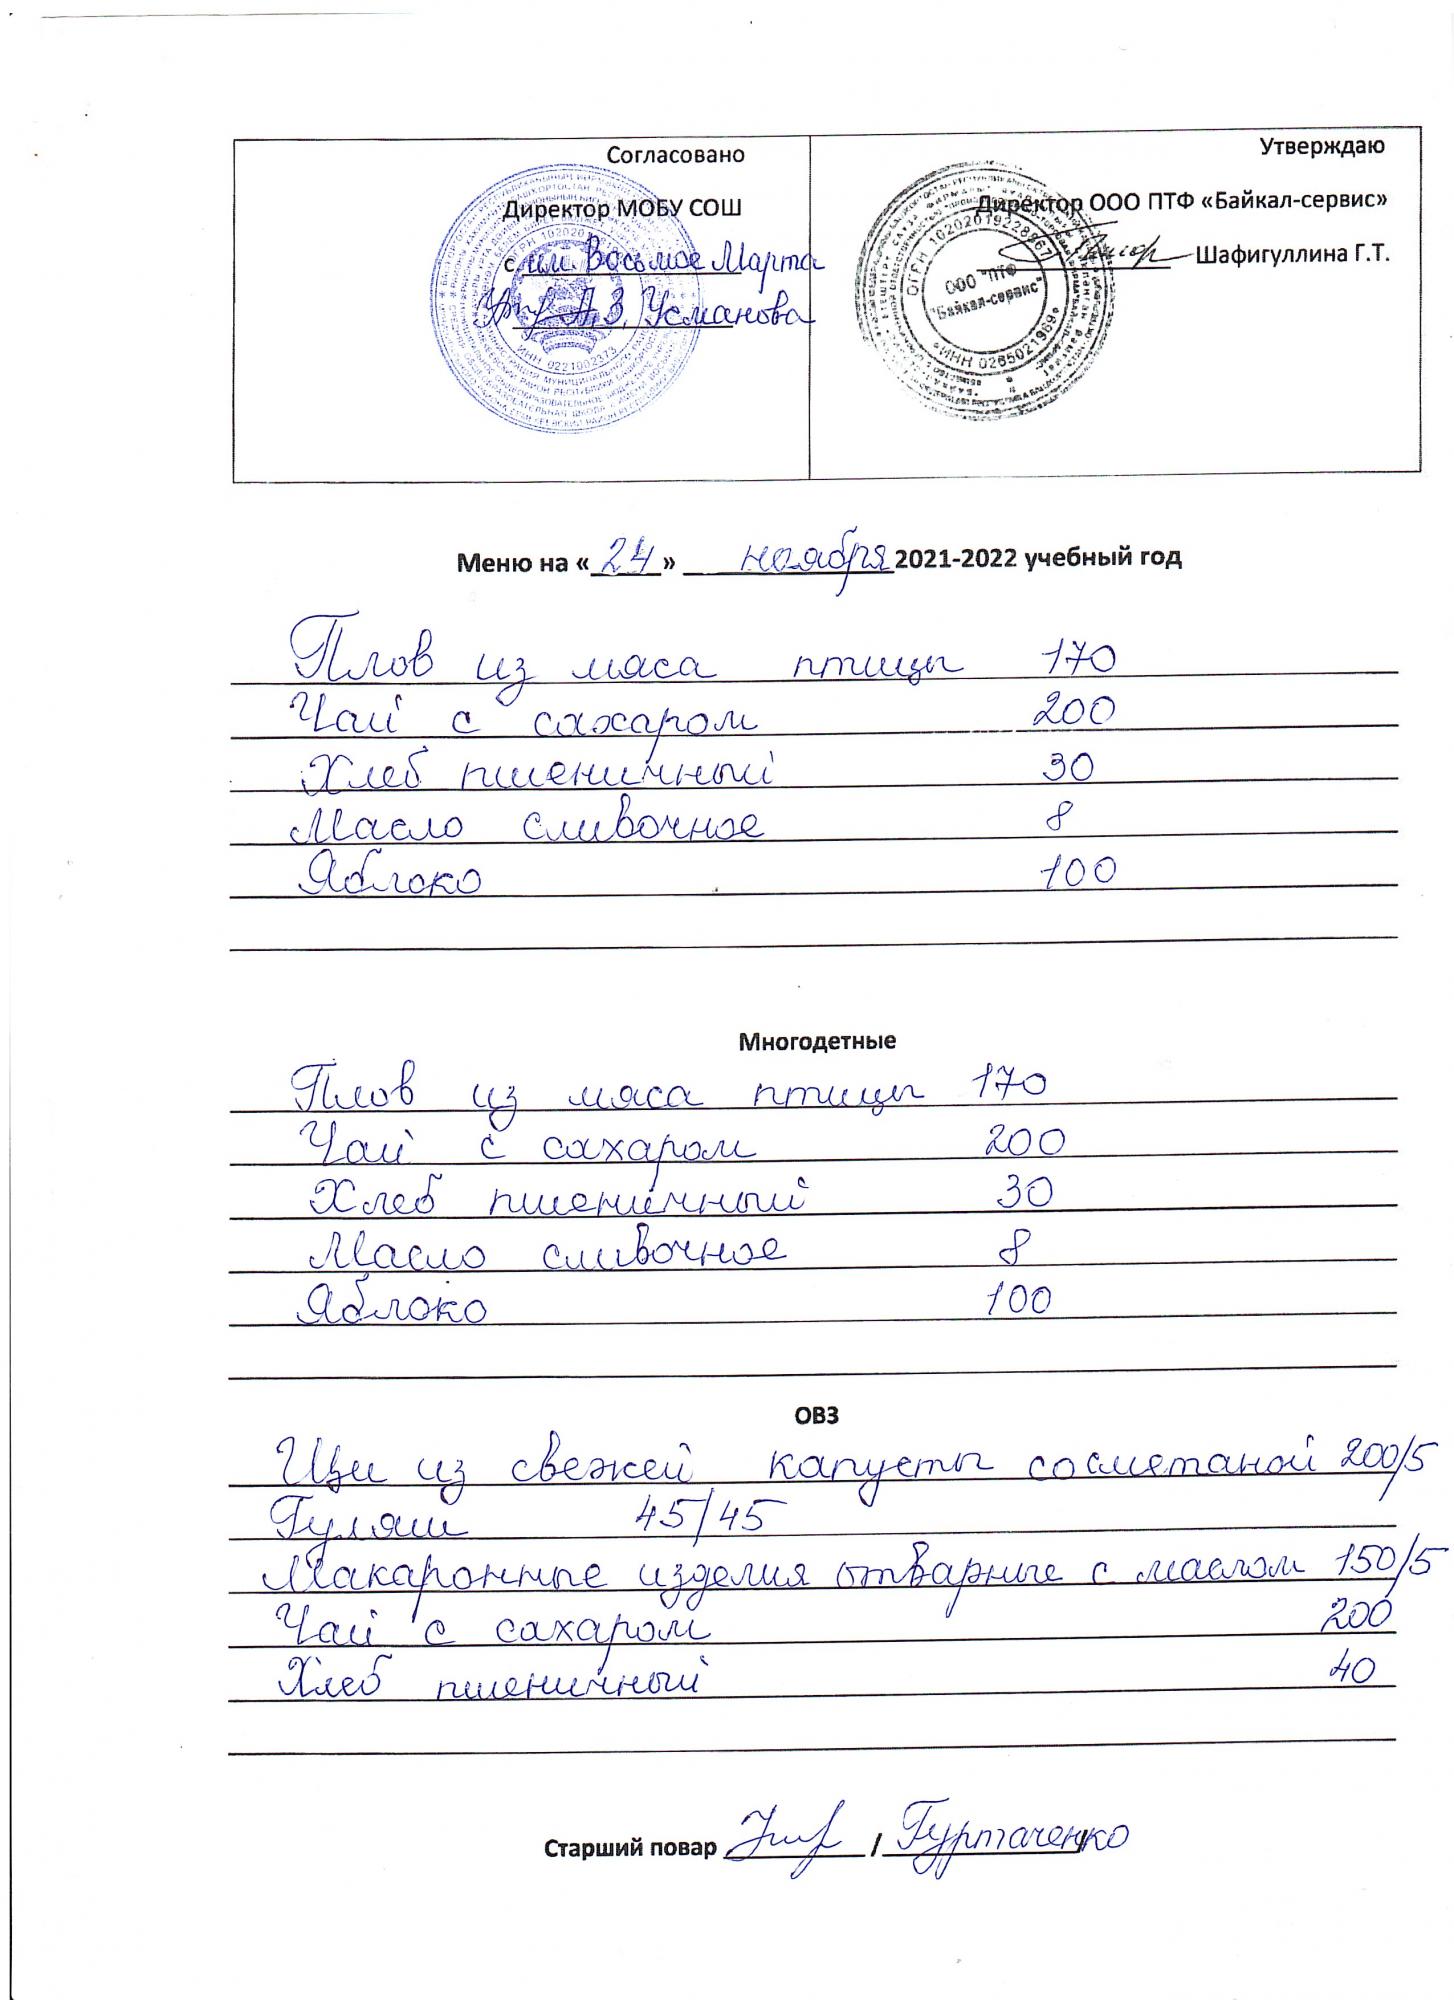 Согласовано
Директор МОБУ СОШ
с им. Восьмое Марта
А.З. Усманова
Утверждаю
Директор ООО ПТФ «Байкал-сервис»
Шафигуллина Г.Т.
ОГРН 1020201922867
ООО "ПТФ
"Байкал-сервис"
ИНН 0265021969
ИНН 0221002373
Меню на « 24 » ноября 2021-2022 учебный год
Плов из мяса птицы 170
Чай с сахаром 200
Хлеб пшеничный 30
Масло сливочное 8
Яблоко 100
Многодетные
Плов из мяса птицы 170
Чай с сахаром 200
Хлеб пшеничный 30
Масло сливочное 8
Яблоко 100
ОВЗ
Щи из свежей капусты со сметаной 200/5
Гуляш 45/45
Макаронные изделия отварные с маслом 150/5
Чай с сахаром 200
Хлеб пшеничный 40
Старший повар / Гуртаченко